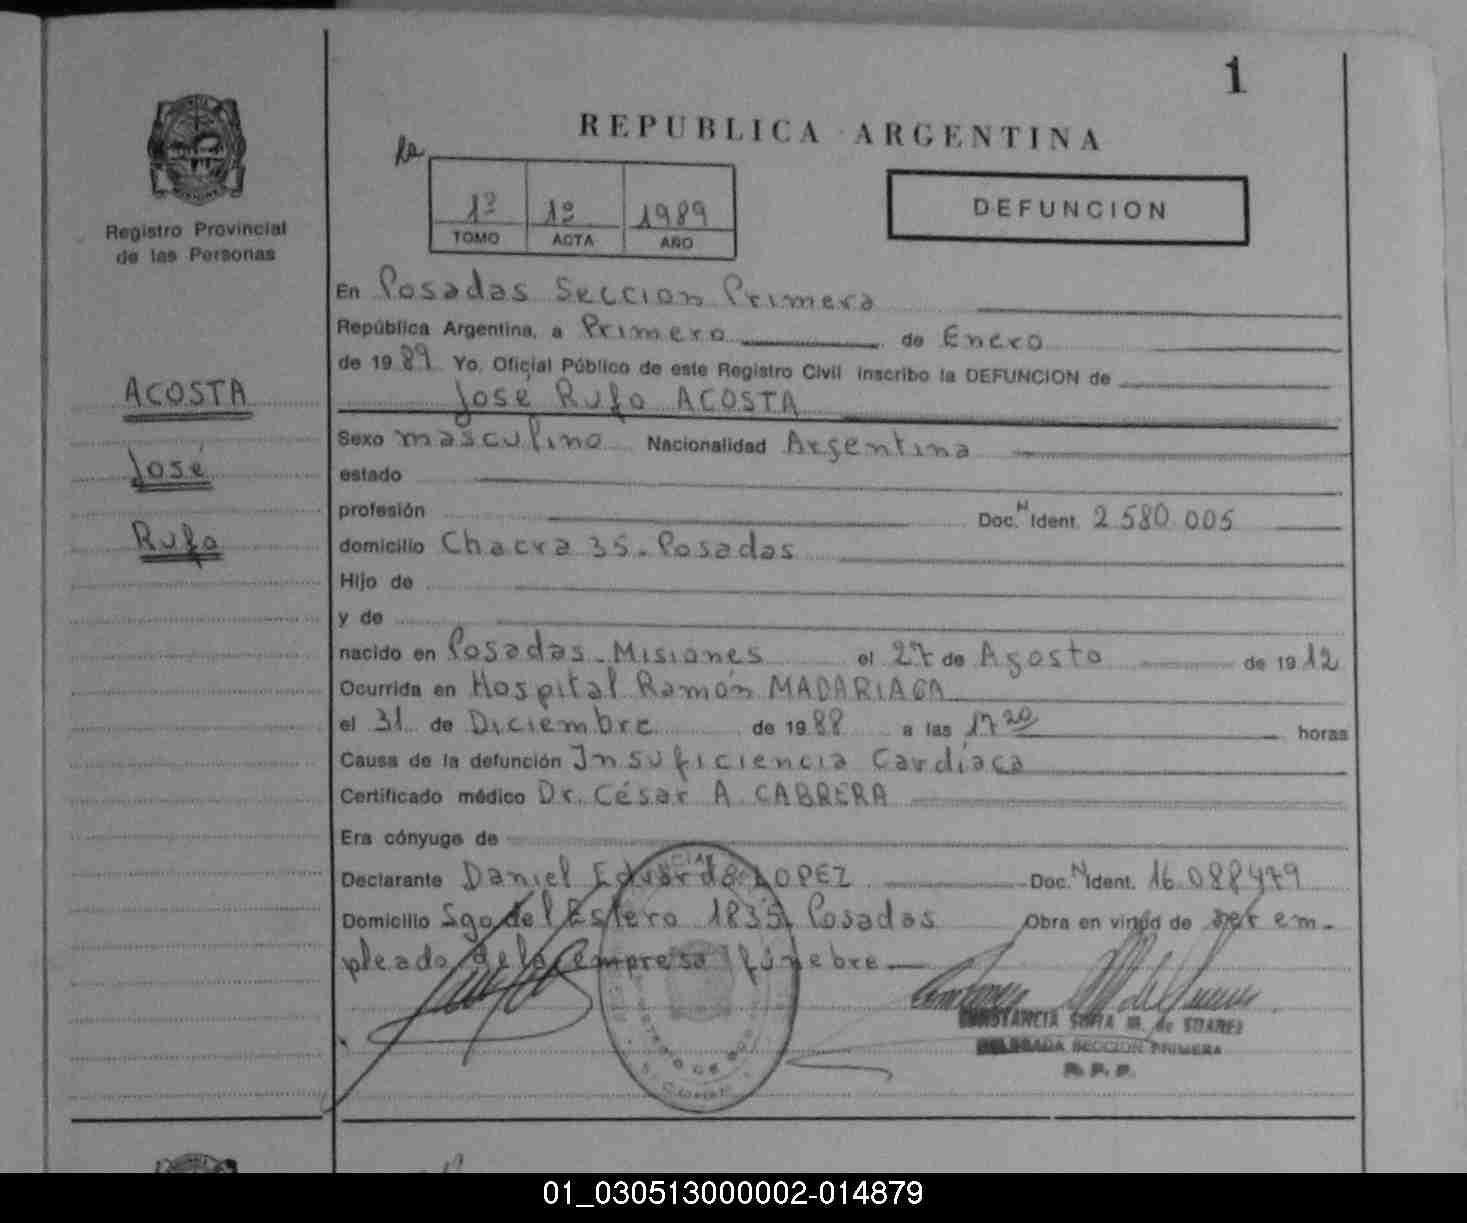 1
REPUBLICA ARGENTINA
1º 1º 1989
TOMO ACTA AÑO
DEFUNCION
Registro Provincial
de las Personas
ACOSTA
José
Rufo
En Posadas Seccion Primera
República Argentina, a Primero de Enero
de 1989 Yo, Oficial Público de este Registro Civil inscribo la DEFUNCION de
José Rufo ACOSTA
Sexo masculino Nacionalidad Argentina
estado
profesión Doc. N Ident. 2.580.005
domicilio Chacra 35. Posadas
Hijo de
y de
nacido en Posadas - Misiones el 27 de Agosto de 1912
Ocurrida en Hospital Ramón MADARIAGA
el 31 de Diciembre de 1988 a las 17 20 horas
Causa de la defunción Insuficiencia Cardíaca
Certificado médico Dr. César A. CABRERA
Era cónyuge de
Declarante Daniel Eduardo LOPEZ Doc. N Ident. 16.088479
Domicilio Sgo del Estero 1835, Posadas Obra en virtud de ser em-
pleado de la empresa fúnebre
CONSTANCIA SOFIA M. de SUAREZ
DELEGADA SECCION PRIMERA
R. P. P.
01_030513000002-014879